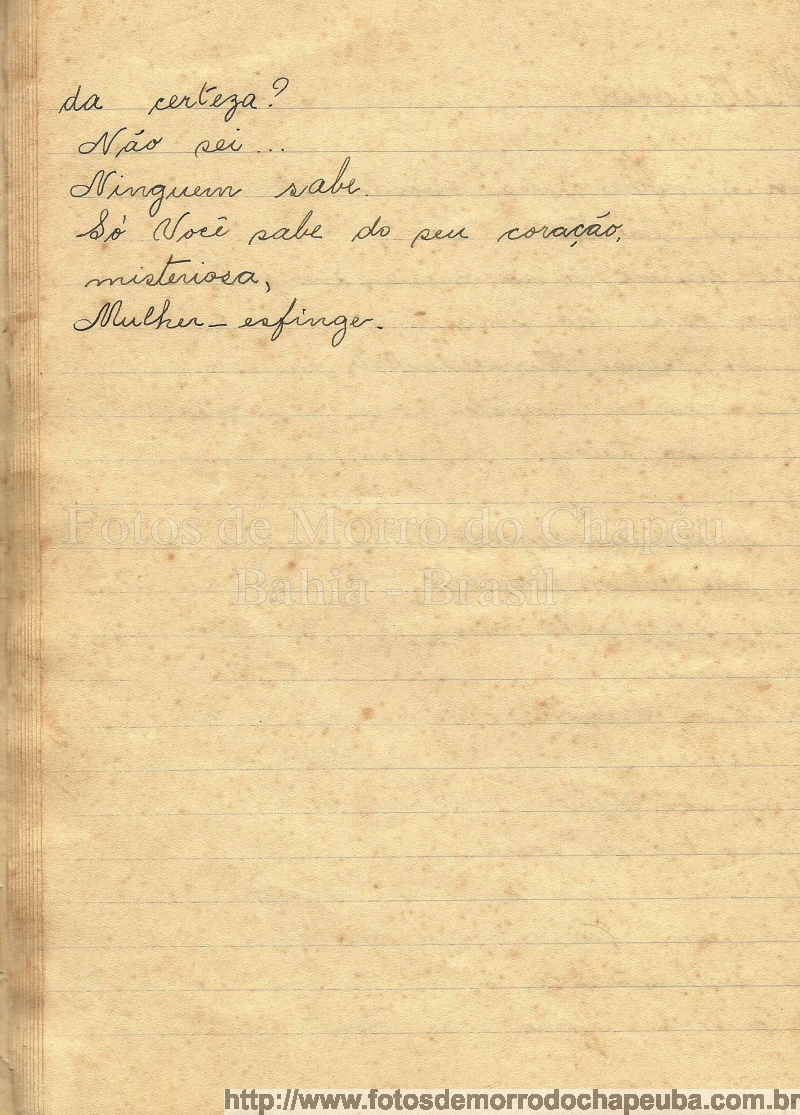 da certeza?
Não sei...
Ninguem sabe.
Só Você sabe do seu coração,
misteriosa,
Mulher-esfinge.
Fotos de Morro do Chapéu
Bahia - Brasil
http://www.fotosdemorrodochapeuba.com.br